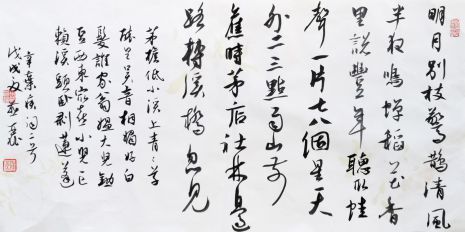 明月别枝驚鵲清風
半夜鳴蟬稻花香
里説豐年聽取蛙
聲一片七八個星天
外二三點雨山前
舊時茅店社林邊
路轉溪橋忽見
茅檐低小溪上青々草
醉里吴音相媚好白
髮誰家翁媪大兒鋤
豆東小兒亡
賴溪頭卧剥蓮蓬
辛棄疾詞二首
戊戌